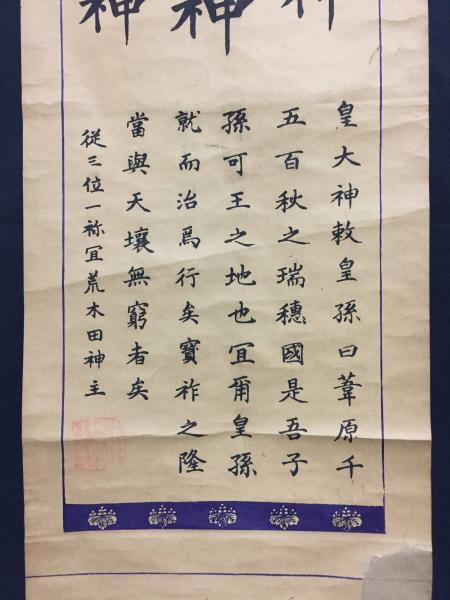 神
神
神
皇大神敕皇孫曰葦原千
五百秋之瑞穗國是吾子
孫可王之地也宜爾皇孫
就而治焉行矣寶祚之隆
當與天壤無窮者矣
從三位一祢宜荒木田神主